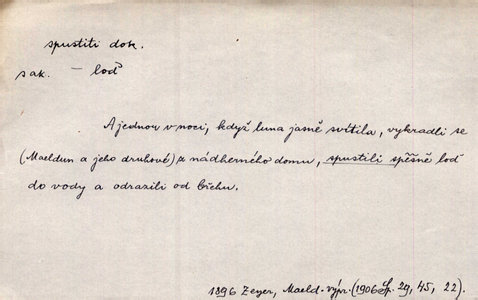 spustiti dok.
sak. – loď
A jednou v noci, když luna jasně svítila, vykradli se
(Maeldun a jeho druhové) z nádherného domu, spustili spěšně loď
do vody a odrazili od břehu.
1896 Zeyer, Maeld. výpr. (1906 Sp. 29, 45, 22).